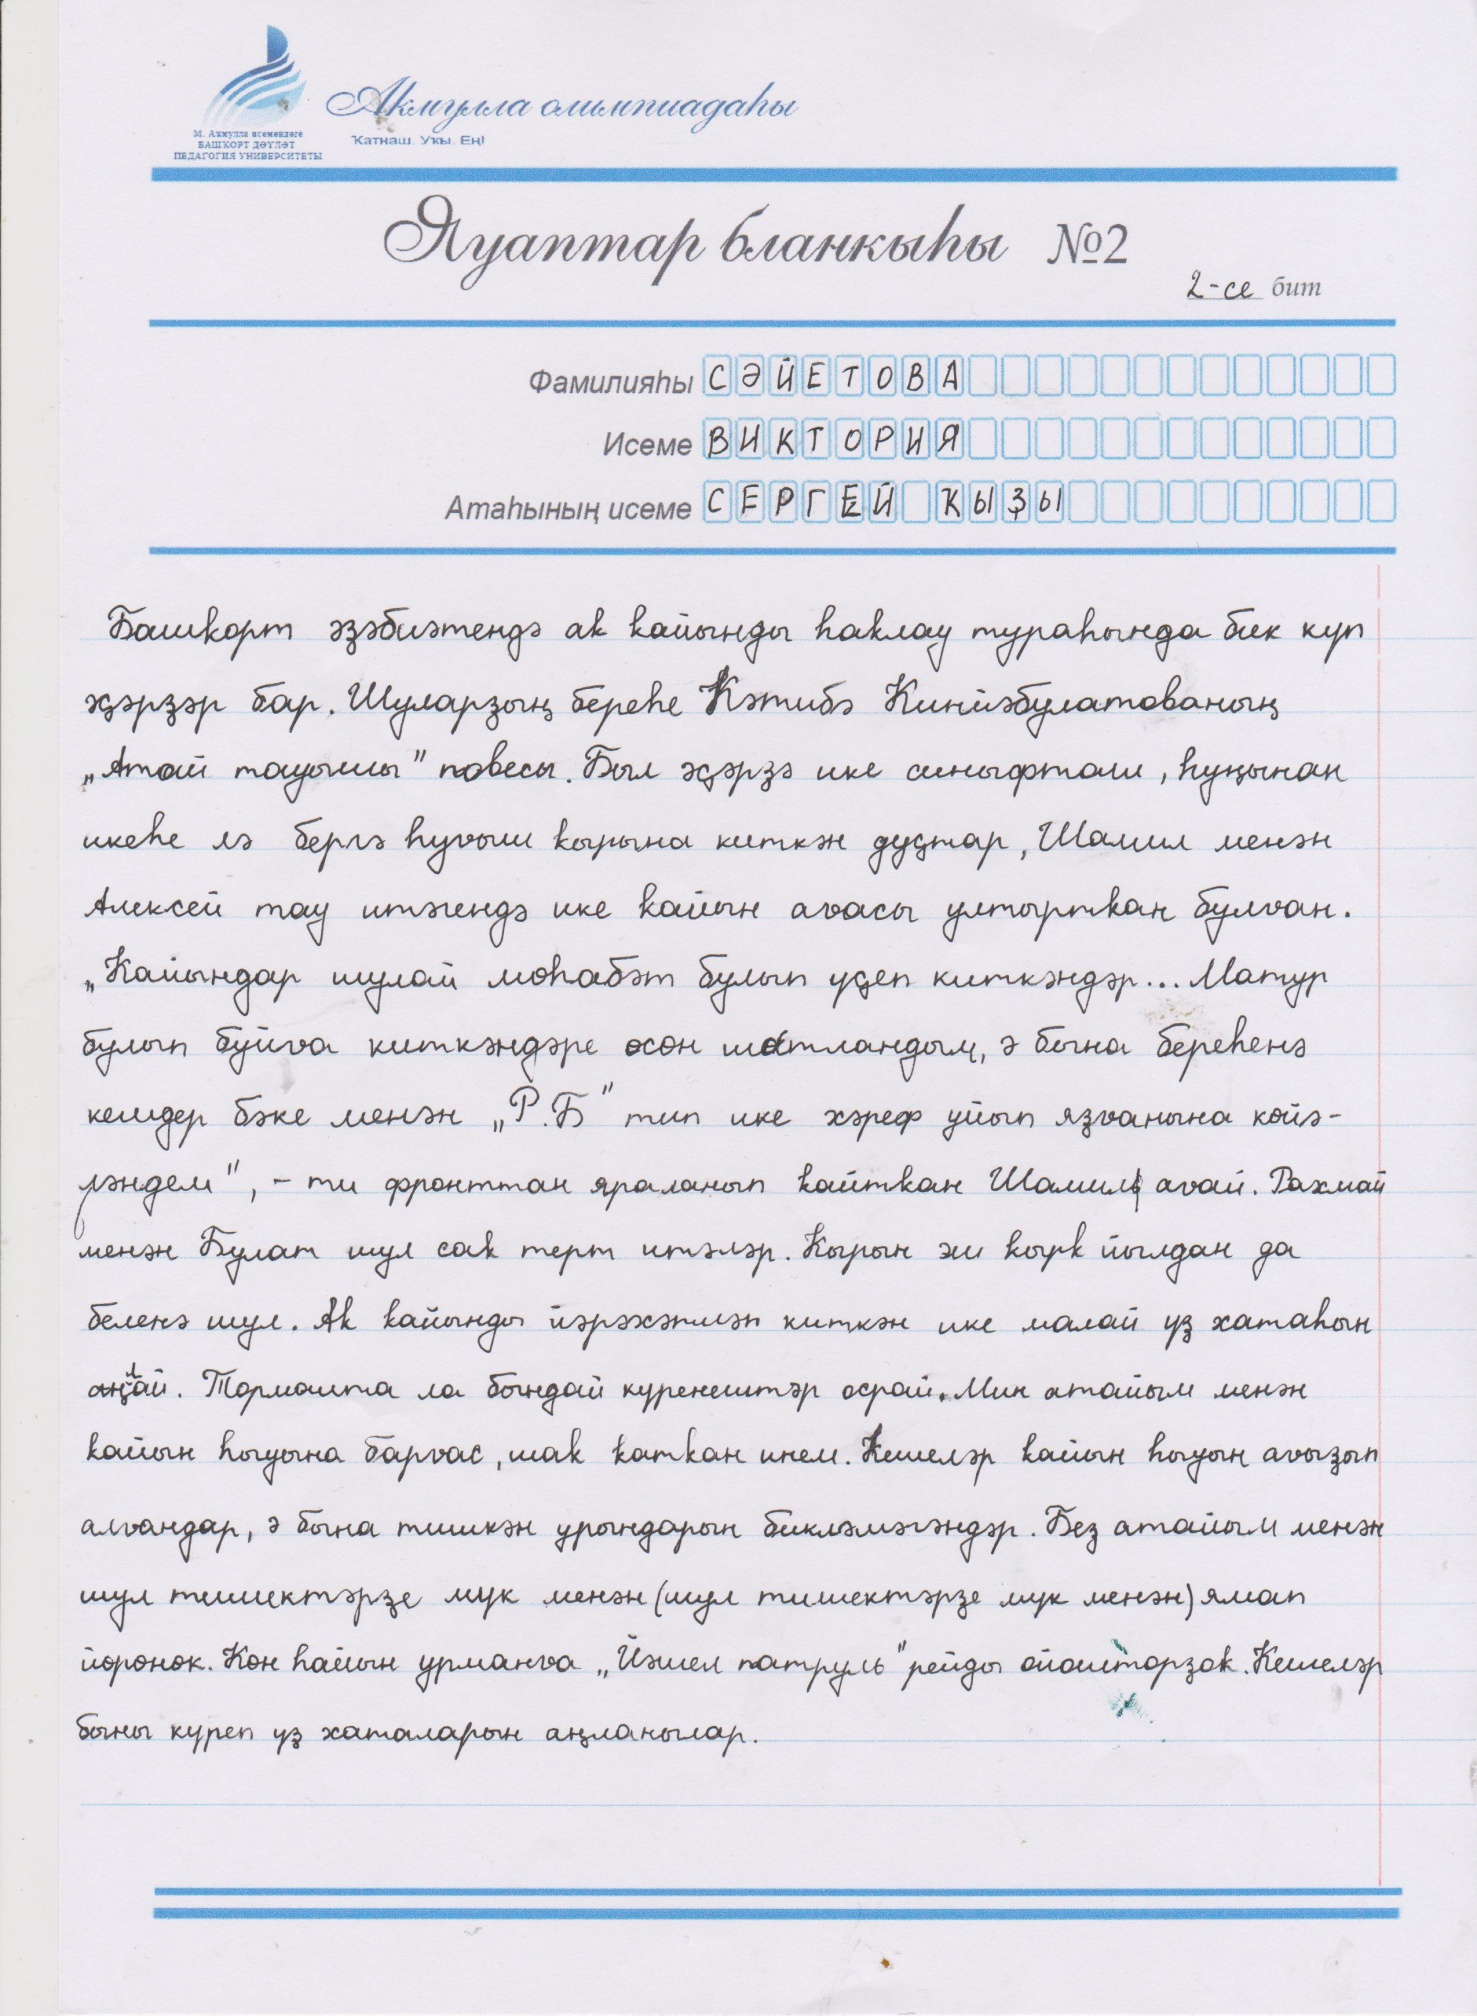 М. Акмулла исемендәге
БАШҠОРТ ДӘҮЛӘТ
ПЕДАГОГИЯ УНИВЕРСИТЕТЫ
Акмулла олимпиадаһы
Ҡатнаш. Уҡы. Еңі
Яуаптар бланкыһы №2
2-се бит
Фамилияһы СӘЙЕТОВА
Исеме ВИКТОРИЯ
Атаһының исеме СЕРГЕЙ ҠЫҘЫ
Башҡорт әҙәбиәтендә аҡ ҡайынды һаҡлау тураһында бик күп
әҫәрҙәр бар. Шуларҙың береһе Кәтибә Кинйәбулатованың
„Атай тауышы" повесы. Был әҫәрҙә ике синыфташ, һуңынан
икеһе лә бергә һуғыш ҡырына киткән дуҫтар, Шамил менән
Алексей тау итәгендә ике ҡайын ағасы ултыртҡан булған.
„Ҡайындар шулай мөһабәт булып үҫеп киткәндәр... Матур
булып буйға киткәндәре өсөн шатландым, ә бына береһенә
кемдер бәке менән „Р.Б" тип ике хәреф уйып яҙғанына көйә-
ләндем", - ти фронттан яраланып ҡайтҡан Шамил ағай. Рахмай
менән Булат шул саҡ терт итәләр. Ҡырын эш ҡырҡ йылдан да
беленә шул. Аҡ ҡайынды йәрәхәтләп киткән ике малай үҙ хатаһын
аңлай. Тормошта ла бындай күренештәр осрай. Мин атайым менән
ҡайын һыуына барғас, шаҡ ҡатҡан инем. Кешеләр ҡайын һыуын ағыҙып
алғандар, ә бына тишкән урындарын бикләмәгәндәр. Беҙ атайым менән
шул тишектәрҙе мүк менән (шул тишектәрҙе мүк менән) ямап
йөрөнөк. Көн һайын урманға „Йәшел патруль" рейды ойошторҙоҡ. Кешеләр
быны күреп үҙ хаталарын аңланылар.